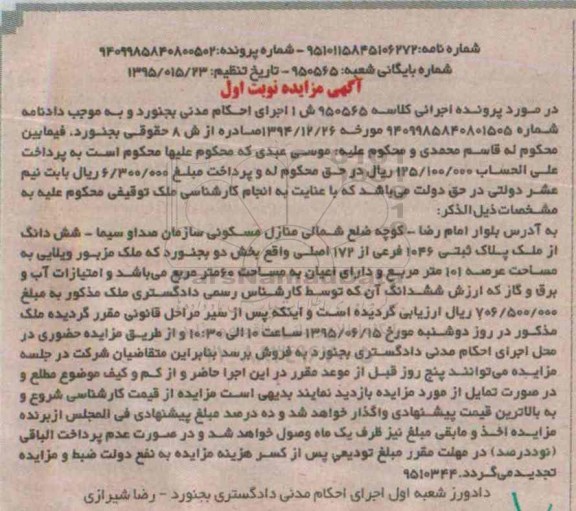 شماره نامه:۹۵۱۰۱۱۵۸۴۵۱۰۶۲۷۲ – شماره پرونده:۹۴۰۹۹۸۵۸۴۰۸۰۰۵۰۲
شماره بایگانی شعبه: ۹۵۰۵۶۵ – تاریخ تنظیم: ۱۳۹۵/۰۱۵/۲۳
آگهی مزایده نوبت اول
در مورد پرونده اجرائی کلاسه ۹۵۰۵۶۵ ش ۱ اجرای احکام مدنی بجنورد و به موجب دادنامه
شماره ۹۴۰۹۹۸۵۸۴۰۸۰۱۵۰۵ مورخه ۱۳۹۴/۱۲/۲۶صادره از ش ۸ حقوقی بجنورد، فیمابین
محکوم له قاسم محمدی و محکوم علیه: موسی عبدی که محکوم علیها محکوم است به پرداخت
علی الحساب ۱۲۵/۱۰۰/۰۰۰ ریال در حق محکوم له و پرداخت مبلغ ۶/۳۰۰/۰۰۰ ریال بابت نیم
عشر دولتی در حق دولت می‌باشد که با عنایت به انجام کارشناسی ملک توقیفی محکوم علیه به
مشخصات ذیل الذکر:
به آدرس بلوار امام رضا – کوچه ضلع شمالی منازل مسکونی سازمان صداو سیما – شش دانگ
از ملک پلاک ثبتی ۱۰۴۶ فرعی از ۱۷۲ اصلی واقع بخش دو بجنورد که ملک مزبور ویلایی به
مساحت عرصه ۱۰۱ متر مربع و دارای اعیان به مساحت ۶۰متر مربع می‌باشد و امتیازات آب و
برق و گاز که ارزش ششدانگ آن که توسط کارشناس رسمی دادگستری ملک مذکور به مبلغ
۷۰۶/۵۰۰/۰۰۰ ریال ارزیابی گردیده است و اینکه پس از سیر مراحل قانونی مقرر گردیده ملک
مذکور در روز دوشنبه مورخ ۱۳۹۵/۰۶/۱۵ ساعت ۱۰ الی ۱۰:۳۰ و از طریق مزایده حضوری در
محل اجرای احکام مدنی دادگستری بجنورد به فروش برسد بنابراین متقاضیان شرکت در جلسه
مزایده می‌توانند پنج روز قبل از موعد مقرر در این اجرا حاضر و از کم و کیف موضوع مطلع و
در صورت تمایل از مورد مزایده بازدید نمایند بدیهی است مزایده از قیمت کارشناسی شروع و
به بالاترین قیمت پیشنهادی واگذار خواهد شد و ده درصد مبلغ پیشنهادی فی المجلس ازبرنده
مزایده اخذ و مابقی مبلغ نیز ظرف یک ماه وصول خواهد شد و در صورت عدم پرداخت الباقی
(نوددرصد) در مهلت مقرر مبلغ تودیعی پس از کسر هزینه مزایده به نفع دولت ضبط و مزایده
تجدیدمی‌گردد.۹۵۱۰۳۴۴
دادورز شعبه اول اجرای احکام مدنی دادگستری بجنورد – رضا شیرازی